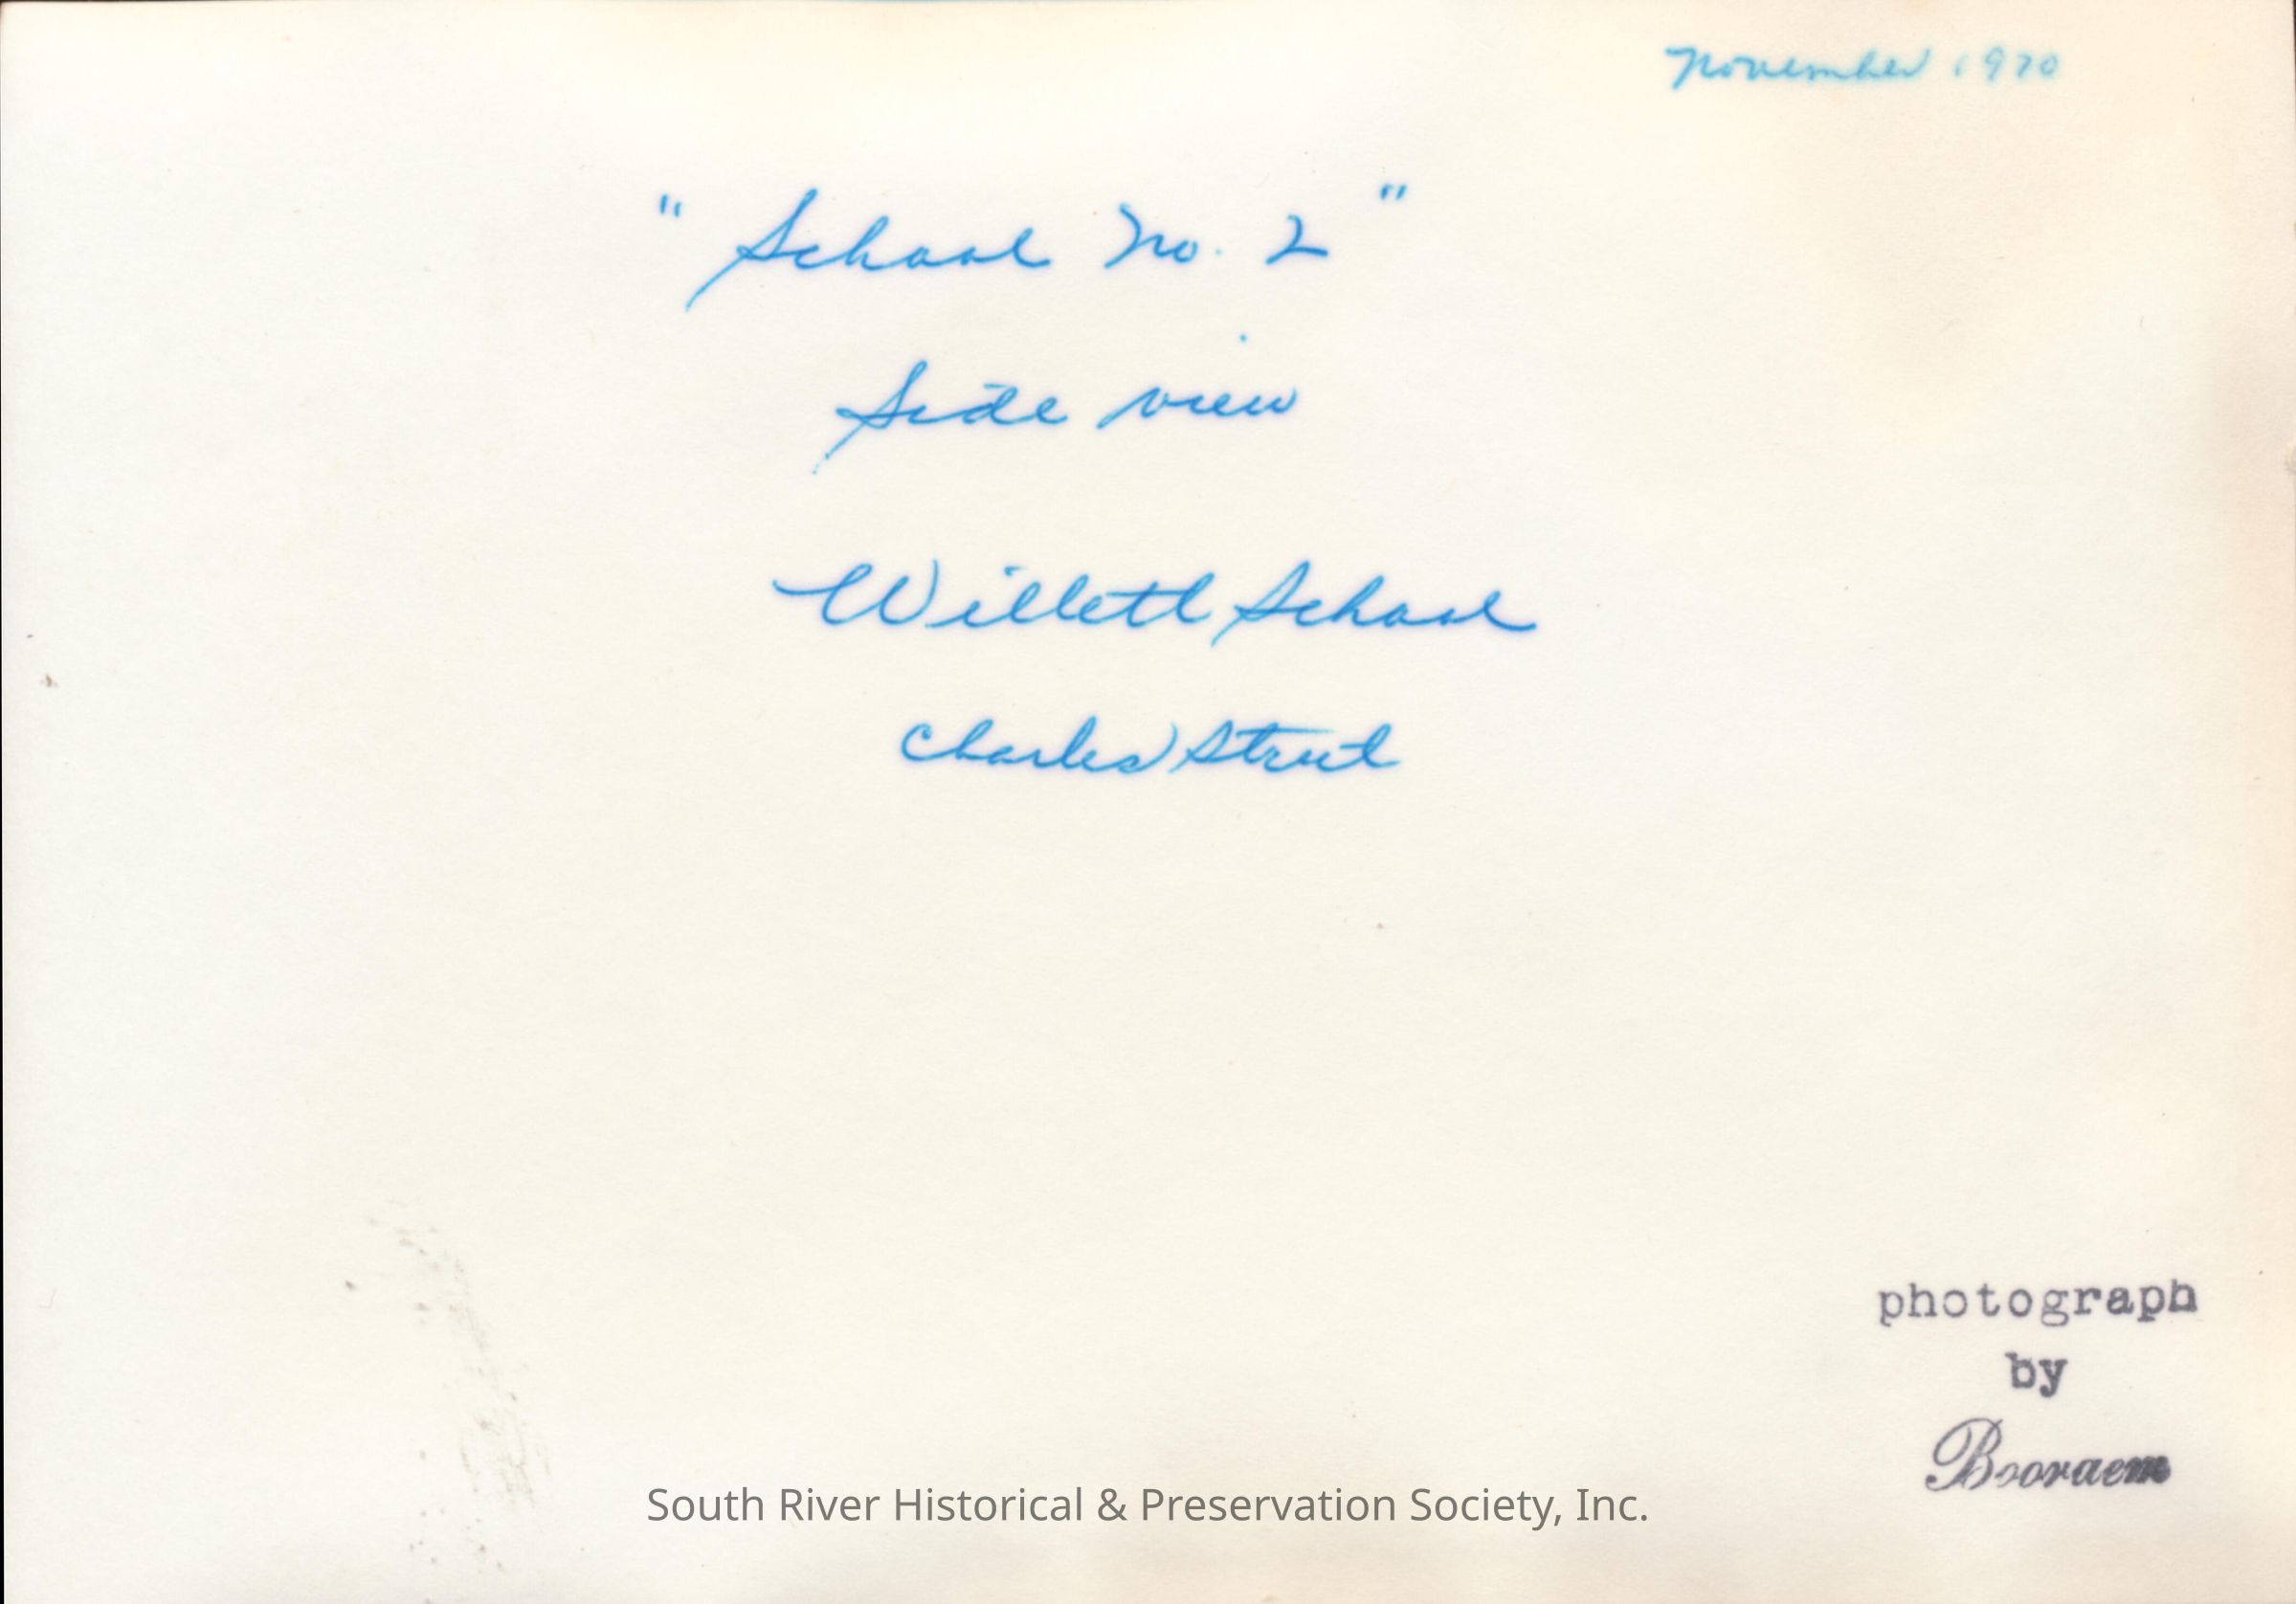 November 1970
" School No. 2 "
Side view
Willett School
Charles Street
photograph
by
Booraem
South River Historical & Preservation Society, Inc.